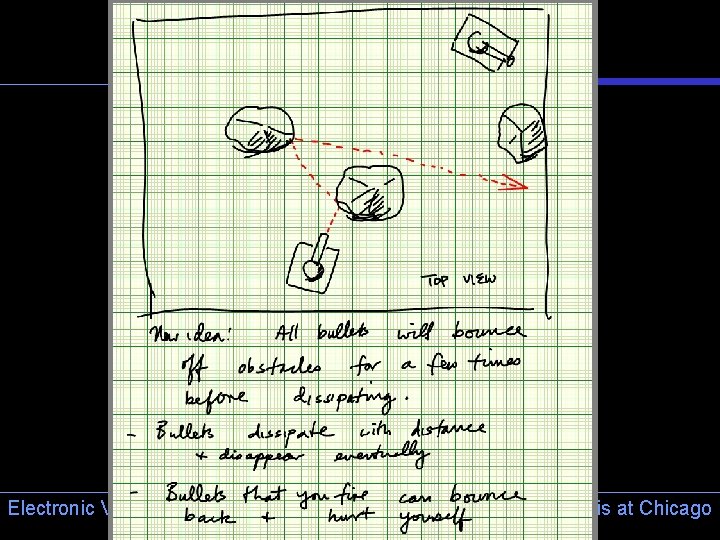 TOP VIEW
New idea: All bullets will bounce
off obstacles for a few times
before dissipating.
- Bullets dissipate with distance
+ disappear eventually
- Bullets that you fire can bounce
back + hurt yourself
Electronic V
is at Chicago